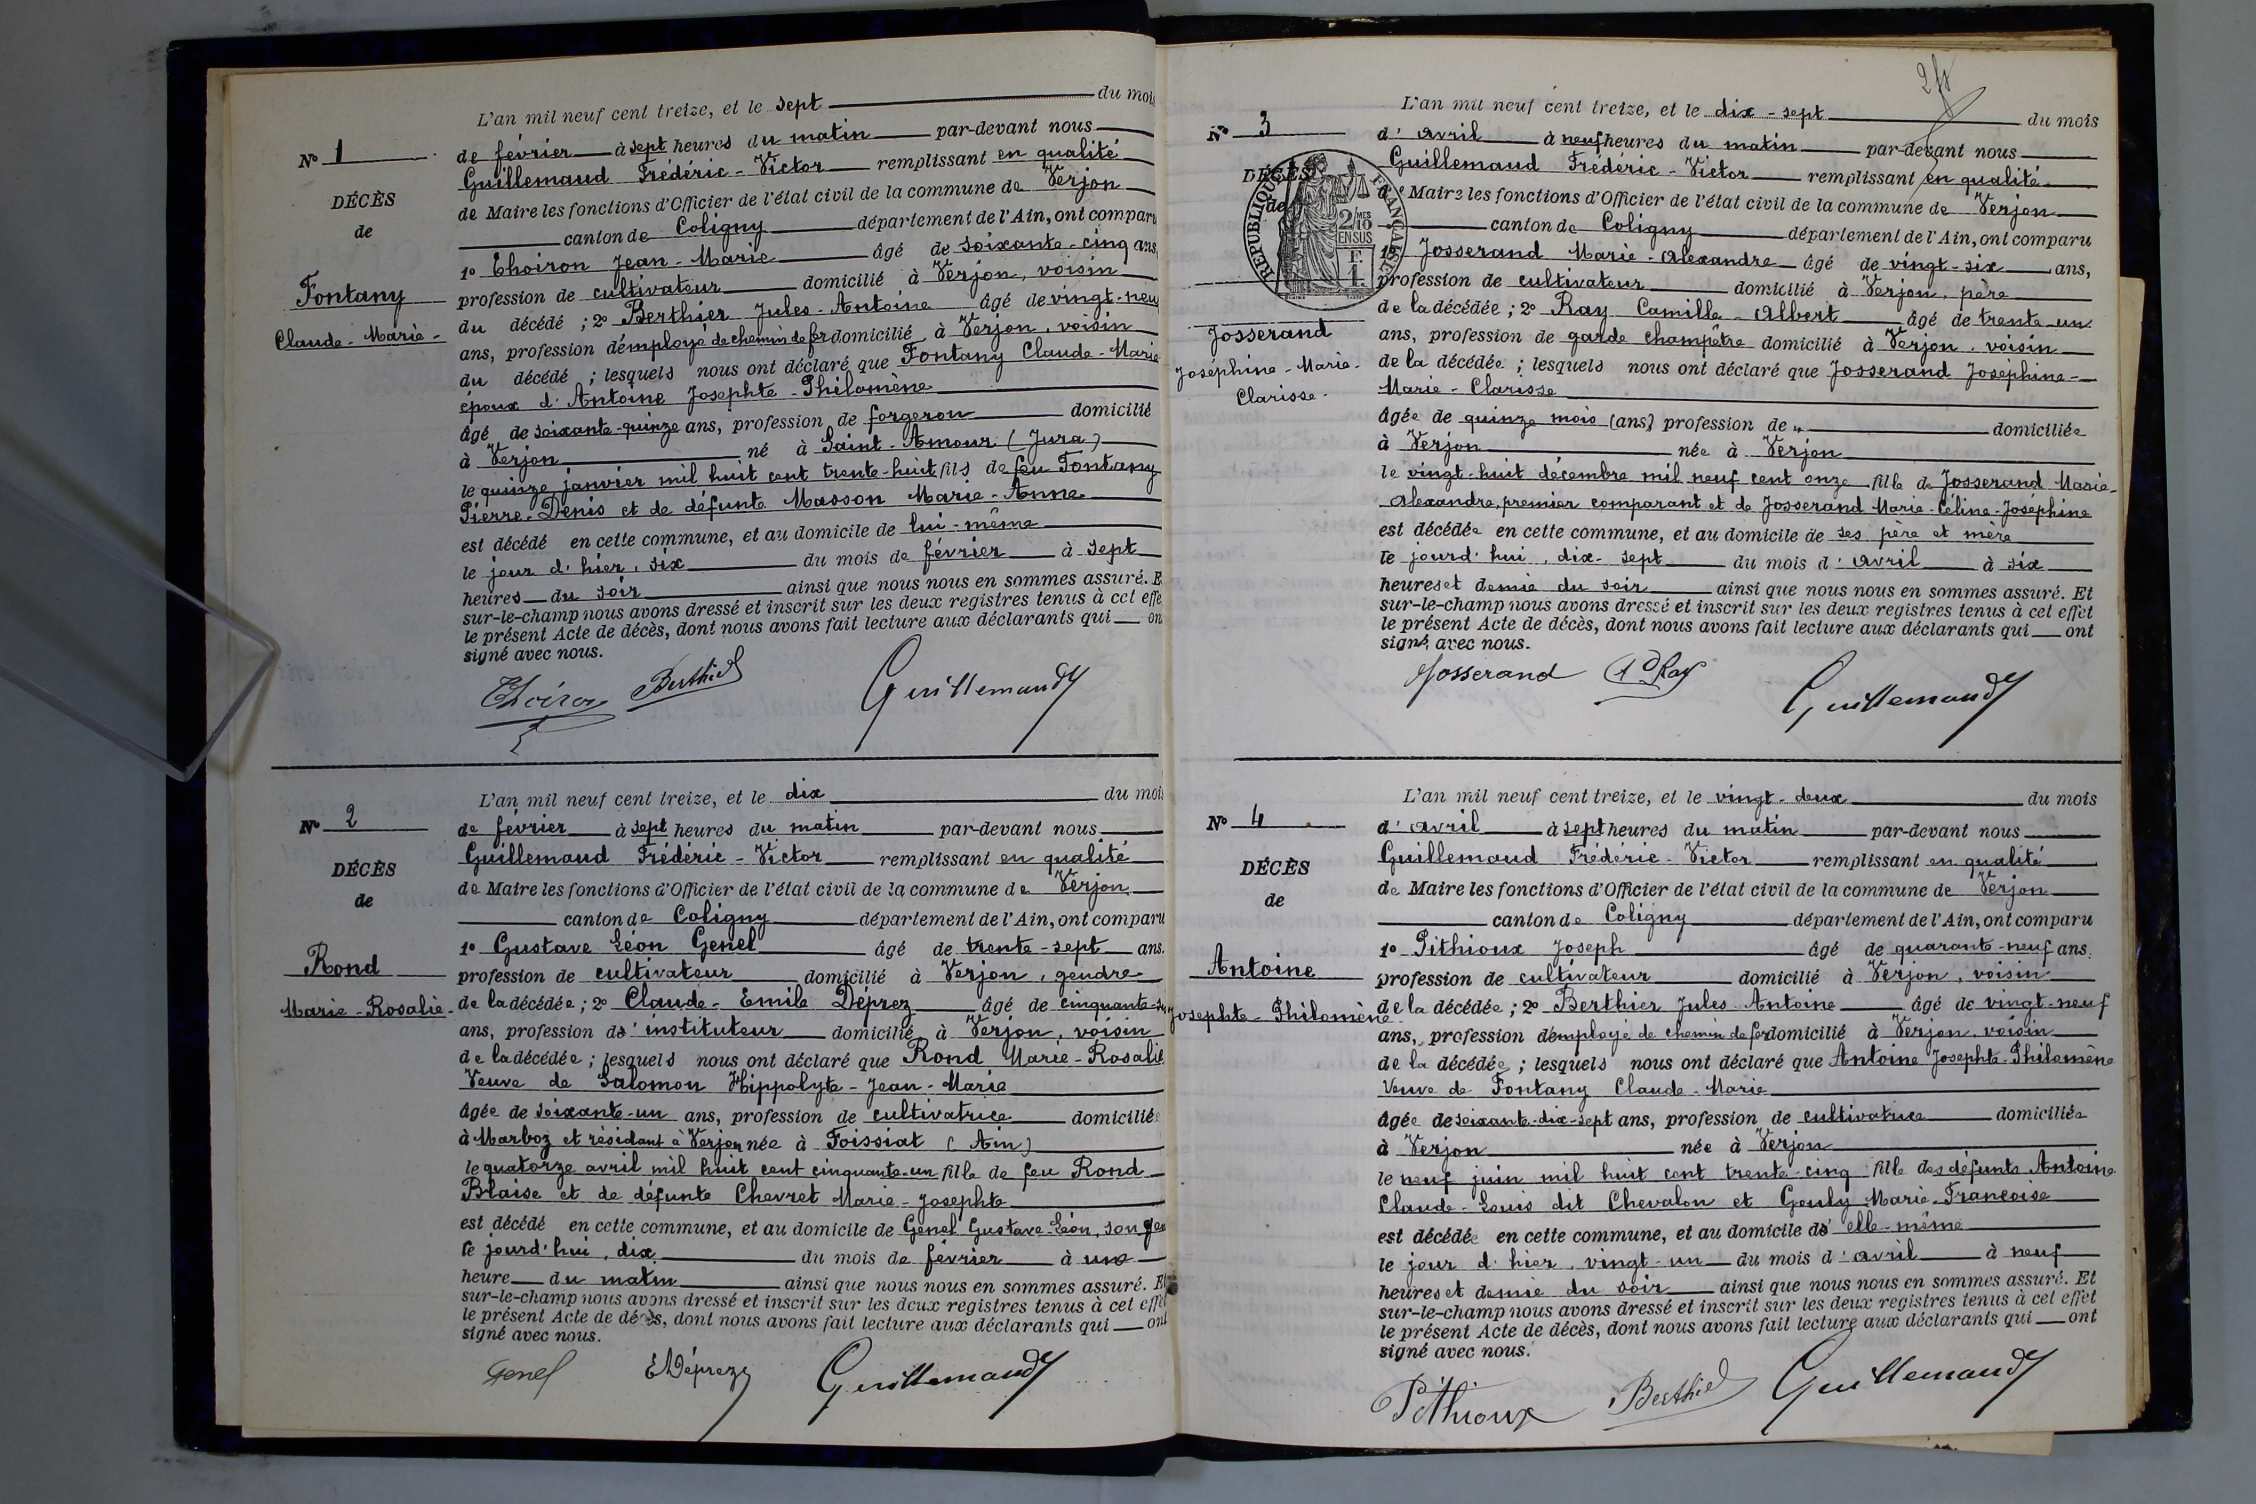 L'an mil neuf cent treize, et le sept du mois
N° 1
de février à sept heures du matin par-devant nous
Guillemaud Frédéric-Victor remplissant en qualité
DÉCÈS
de Maire les fonctions d'Officier de l'état civil de la commune de Verjon
de
canton de Coligny département de l'Ain, ont comparu
1° Thoiron Jean-Marie âgé de soixante-cinq ans,
Fontany
profession de cultivateur domicilié à Verjon, voisin
du décédé ; 2° Berthier Jules-Antoine âgé de vingt-neuf
Claude-Marie-
ans, profession d'employé de chemin de fer domicilié à Verjon, voisin
du décédé ; lesquels nous ont déclaré que Fontany Claude-Marie
époux d'Antoine Josephte-Philomène
âgé de soixante-quinze ans, profession de forgeron domicilié
à Verjon né à Saint-Amour (Jura)
le quinze janvier mil huit cent trente-huit fils de feu Fontany
Pierre-Denis et de défunte Masson Marie-Anne
est décédé en cette commune, et au domicile de lui-même
le jour d'hier, six du mois de février à sept
heures du soir ainsi que nous nous en sommes assuré. E
sur-le-champ nous avons dressé et inscrit sur les deux registres tenus à cet effe
le présent Acte de décès, dont nous avons fait lecture aux déclarants qui on
signé avec nous.
Thoiron Berthier Guillemaud
L'an mil neuf cent treize, et le dix du mois
N° 2
de février à sept heures du matin par-devant nous
Guillemaud Frédéric-Victor remplissant en qualité
DÉCÈS
de Maire les fonctions d'Officier de l'état civil de la commune de Verjon
de
canton de Coligny département de l'Ain, ont comparu
1° Gustave Léon Genel âgé de trente-sept ans.
Rond
profession de cultivateur domicilié à Verjon, gendre
Marie-Rosalie-
de la décédée ; 2° Claude-Emile Déprez âgé de cinquante-
ans, profession d'instituteur domicilié à Verjon, voisin
de la décédée ; lesquels nous ont déclaré que Rond Marie-Rosalie
Veuve de Salomon Hippolyte-Jean-Marie
âgée de soixante-un ans, profession de cultivatrice domiciliée
à Marboz et résidant à Verjon née à Foissiat (Ain)
le quatorze avril mil huit cent cinquante-un fille de feu Rond
Blaise et de défunte Chevret Marie-Josephte
est décédé en cette commune, et au domicile de Genel Gustave-Léon, son gen
le jourd'hui, dix du mois de février à une
heure du matin ainsi que nous nous en sommes assuré. Et
sur-le-champ nous avons dressé et inscrit sur les deux registres tenus à cet effet
le présent Acte de décès, dont nous avons fait lecture aux déclarants qui ont
signé avec nous.
Genel EDéprez Guillemaud
L'an mil neuf cent treize, et le dix-sept du mois
N° 3
d'avril à neuf heures du matin par-devant nous
Guillemaud Frédéric-Victor remplissant en qualité
DÉCÈS
de Maire les fonctions d'Officier de l'état civil de la commune de Verjon
de
RÉPUBLIQUE FRANÇAISE
2/10MES
EN SUS
F.
1.
canton de Coligny département de l'Ain, ont comparu
1° Josserand Marie-Alexandre âgé de vingt-six ans,
profession de cultivateur domicilié à Verjon, père
de la décédée ; 2° Ray Camille-Albert âgé de trente-un
Josserand
ans, profession de garde champêtre domicilié à Verjon, voisin
Joséphine-Marie-
de la décédée ; lesquels nous ont déclaré que Josserand Joséphine-
Clarisse-
Marie-Clarisse
âgée de quinze mois (ans) profession de " domiciliée
à Verjon née à Verjon
le vingt-huit décembre mil neuf cent onze fille de Josserand Marie-
Alexandre, premier comparant et de Josserand Marie-Céline-Joséphine
est décédée en cette commune, et au domicile de ses père et mère
le jourd'hui, dix-sept du mois d'avril à six
heures et demie du soir ainsi que nous nous en sommes assuré. Et
sur-le-champ nous avons dressé et inscrit sur les deux registres tenus à cet effet
le présent Acte de décès, dont nous avons fait lecture aux déclarants qui ont
signé avec nous.
Josserand Ray Guillemaud
L'an mil neuf cent treize, et le vingt-deux du mois
N° 4
d'avril à sept heures du matin par-devant nous
Guillemaud Frédéric-Victor remplissant en qualité
DÉCÈS
de Maire les fonctions d'Officier de l'état civil de la commune de Verjon
de
canton de Coligny département de l'Ain, ont comparu
1° Pithioux Joseph âgé de quarante-neuf ans.
Antoine
profession de cultivateur domicilié à Verjon, voisin
Josephte-Philomène
de la décédée ; 2° Berthier Jules-Antoine âgé de vingt-neuf
ans, profession d'employé de chemin de fer domicilié à Verjon, voisin
de la décédée ; lesquels nous ont déclaré que Antoine Josephte-Philomène
Veuve de Fontany Claude-Marie
âgée de soixante-dix-sept ans, profession de cultivatrice domiciliée
à Verjon née à Verjon
le neuf juin mil huit cent trente-cinq fille des défunts Antoine
Claude-Louis dit Chevalon et Gouly Marie-Françoise
est décédée en cette commune, et au domicile d'elle-même
le jour d'hier, vingt-un du mois d'avril à neuf
heures et demie du soir ainsi que nous nous en sommes assuré. Et
sur-le-champ nous avons dressé et inscrit sur les deux registres tenus à cet effet
le présent Acte de décès, dont nous avons fait lecture aux déclarants qui ont
signé avec nous.
Pithioux Berthier Guillemaud